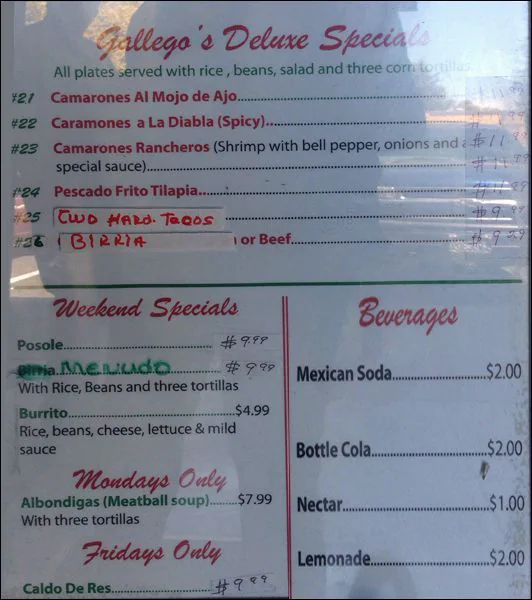 Gallego's Deluxe Specials
All plates served with rice , beans, salad and three corn tortillas
#21 Camarones Al Mojo de Ajo
#22 Caramones a La Diabla (Spicy)
#23 Camarones Rancheros (Shrimp with bell pepper, onions and $11
special sauce)
#24 Pescado Frito Tilapia
#25 TWO HARD. TACOS $9.99
#26 BIRRIA or Beef $9.99
Weekend Specials
Posole $9.99
Birria Menudo $9.99
With Rice, Beans and three tortillas
Burrito $4.99
Rice, beans, cheese, lettuce & mild
sauce
Mondays Only
Albondigas (Meatball soup) $7.99
With three tortillas
Fridays Only
Caldo De Res $9.99
Beverages
Mexican Soda $2.00
Bottle Cola $2.00
Nectar $1.00
Lemonade $2.00